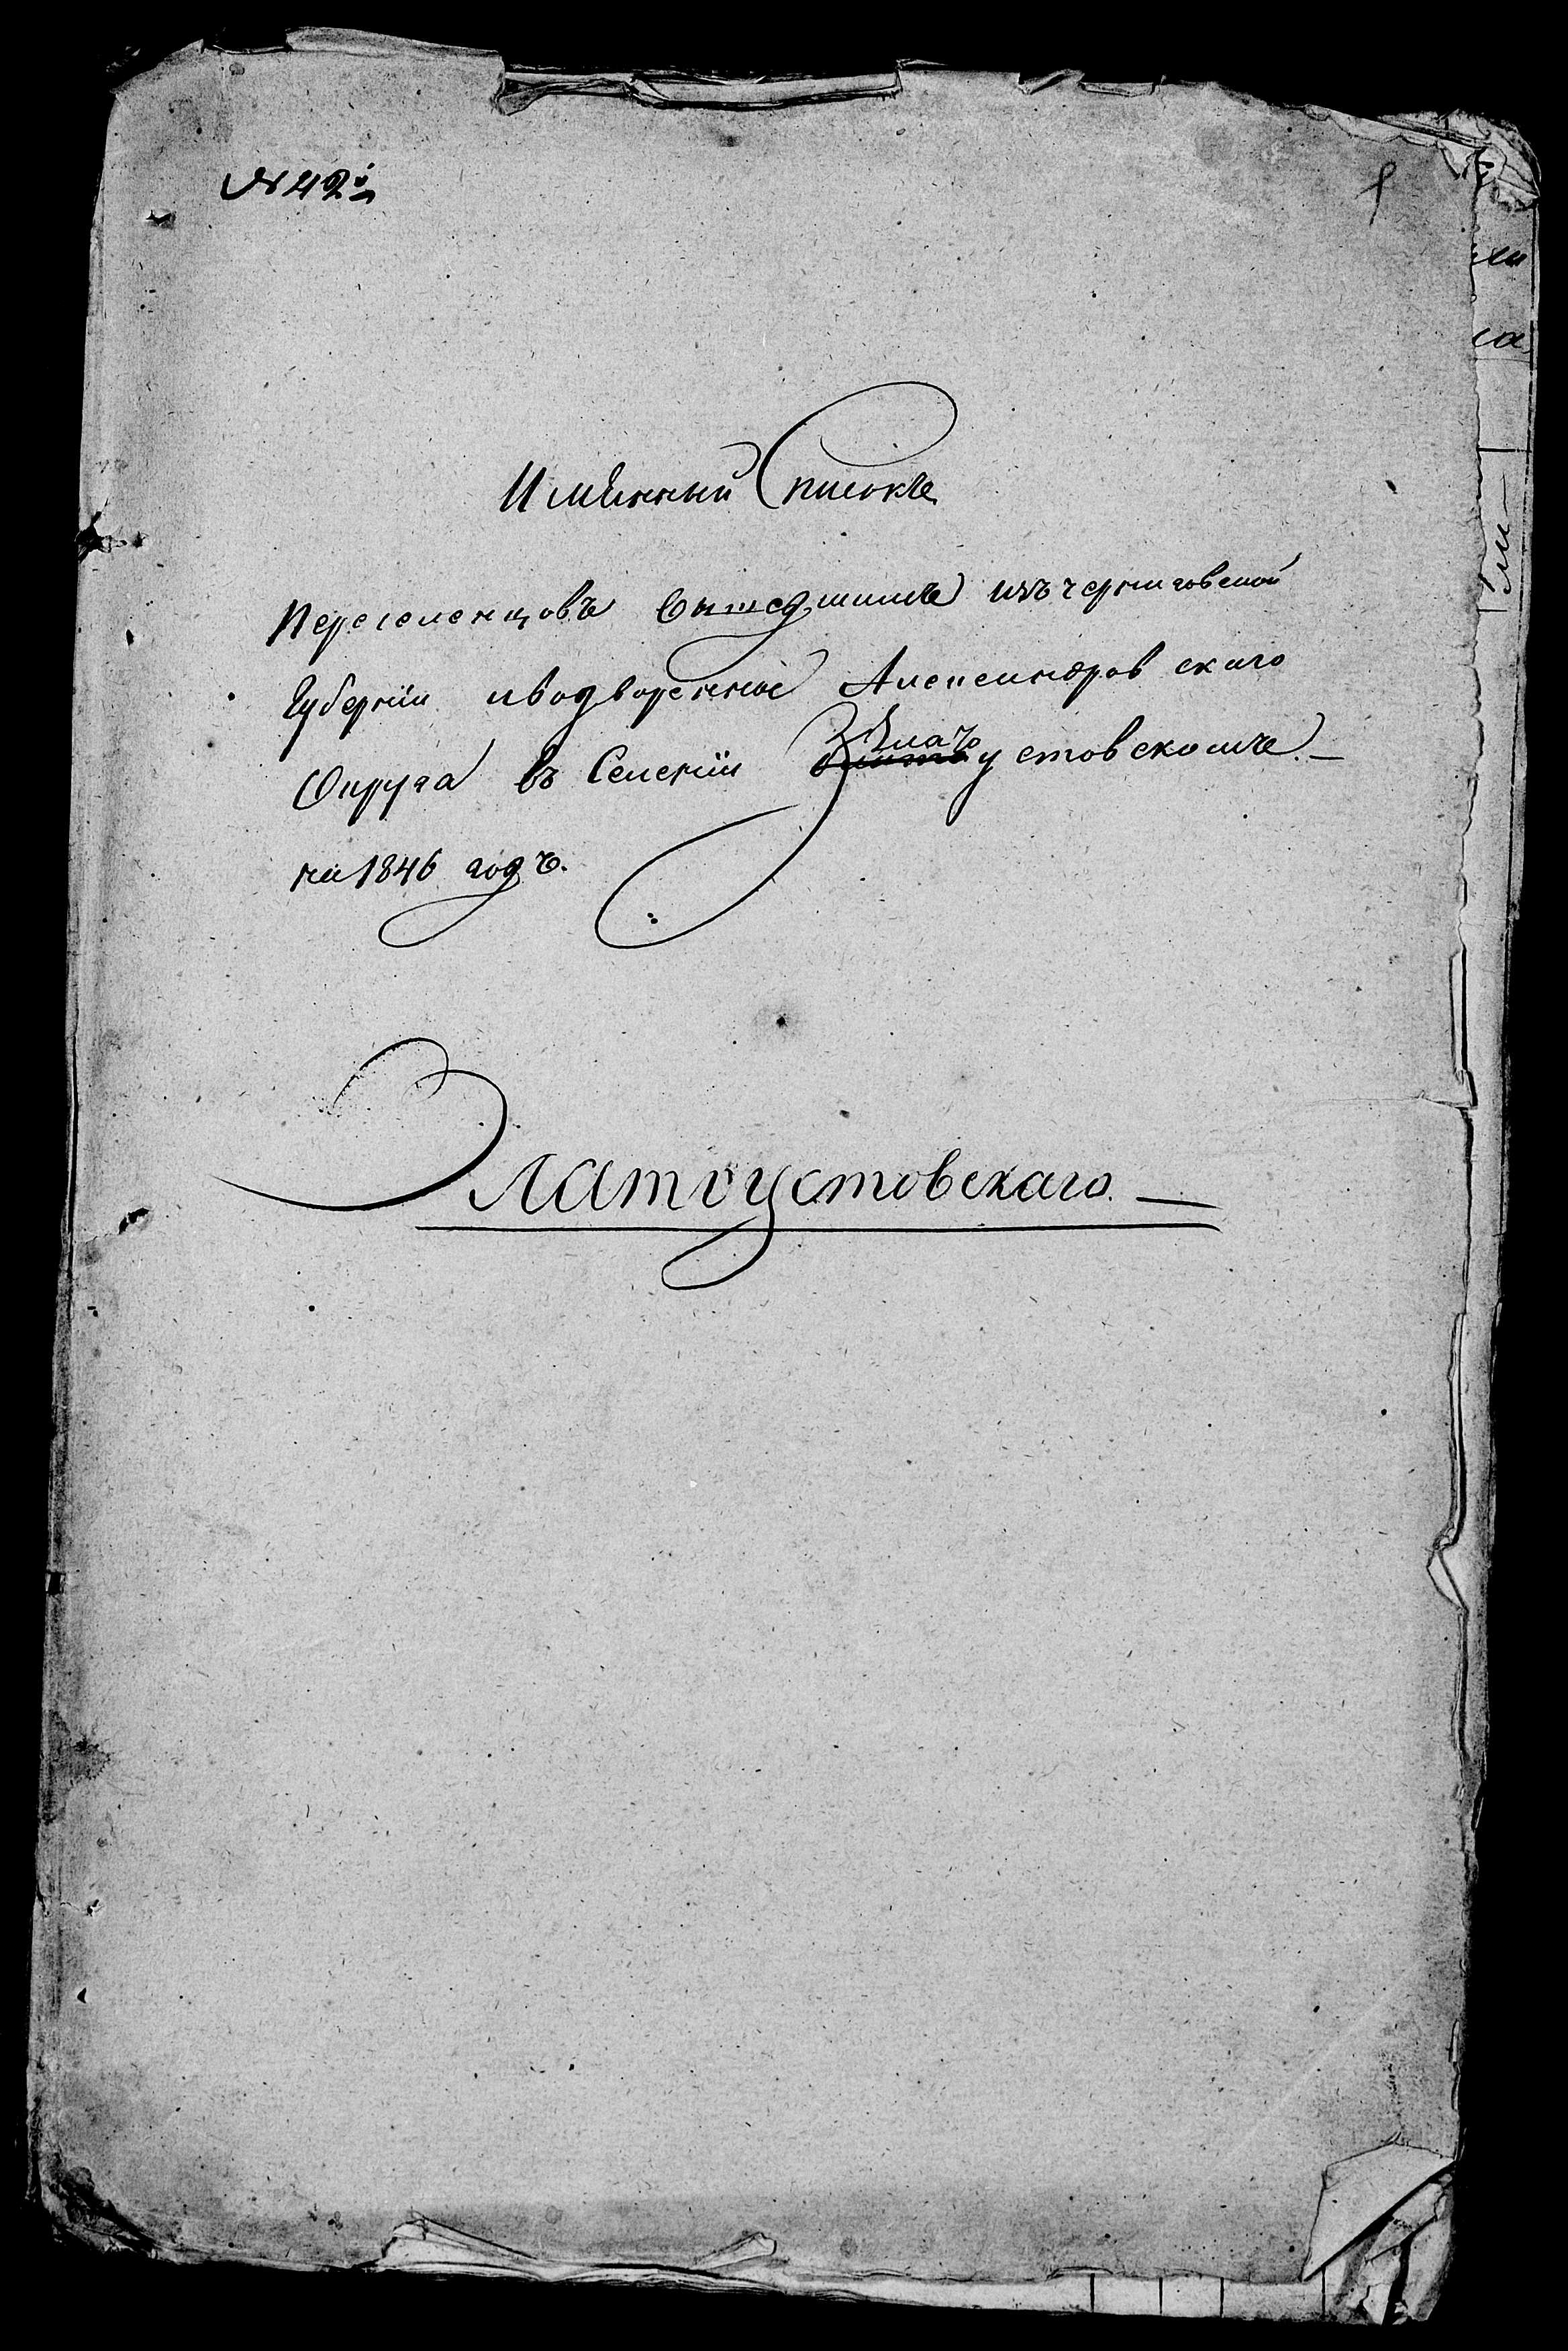 № 42й
1
Имѣнный Списокъ
Переселенцовъ вышедшимъ изъ черниговской
Губерніи и водворенной Александровскаго
Округа въ Селеніи Златоустовскомъ. —
на 1846 годъ.
Златоустовскаго. —